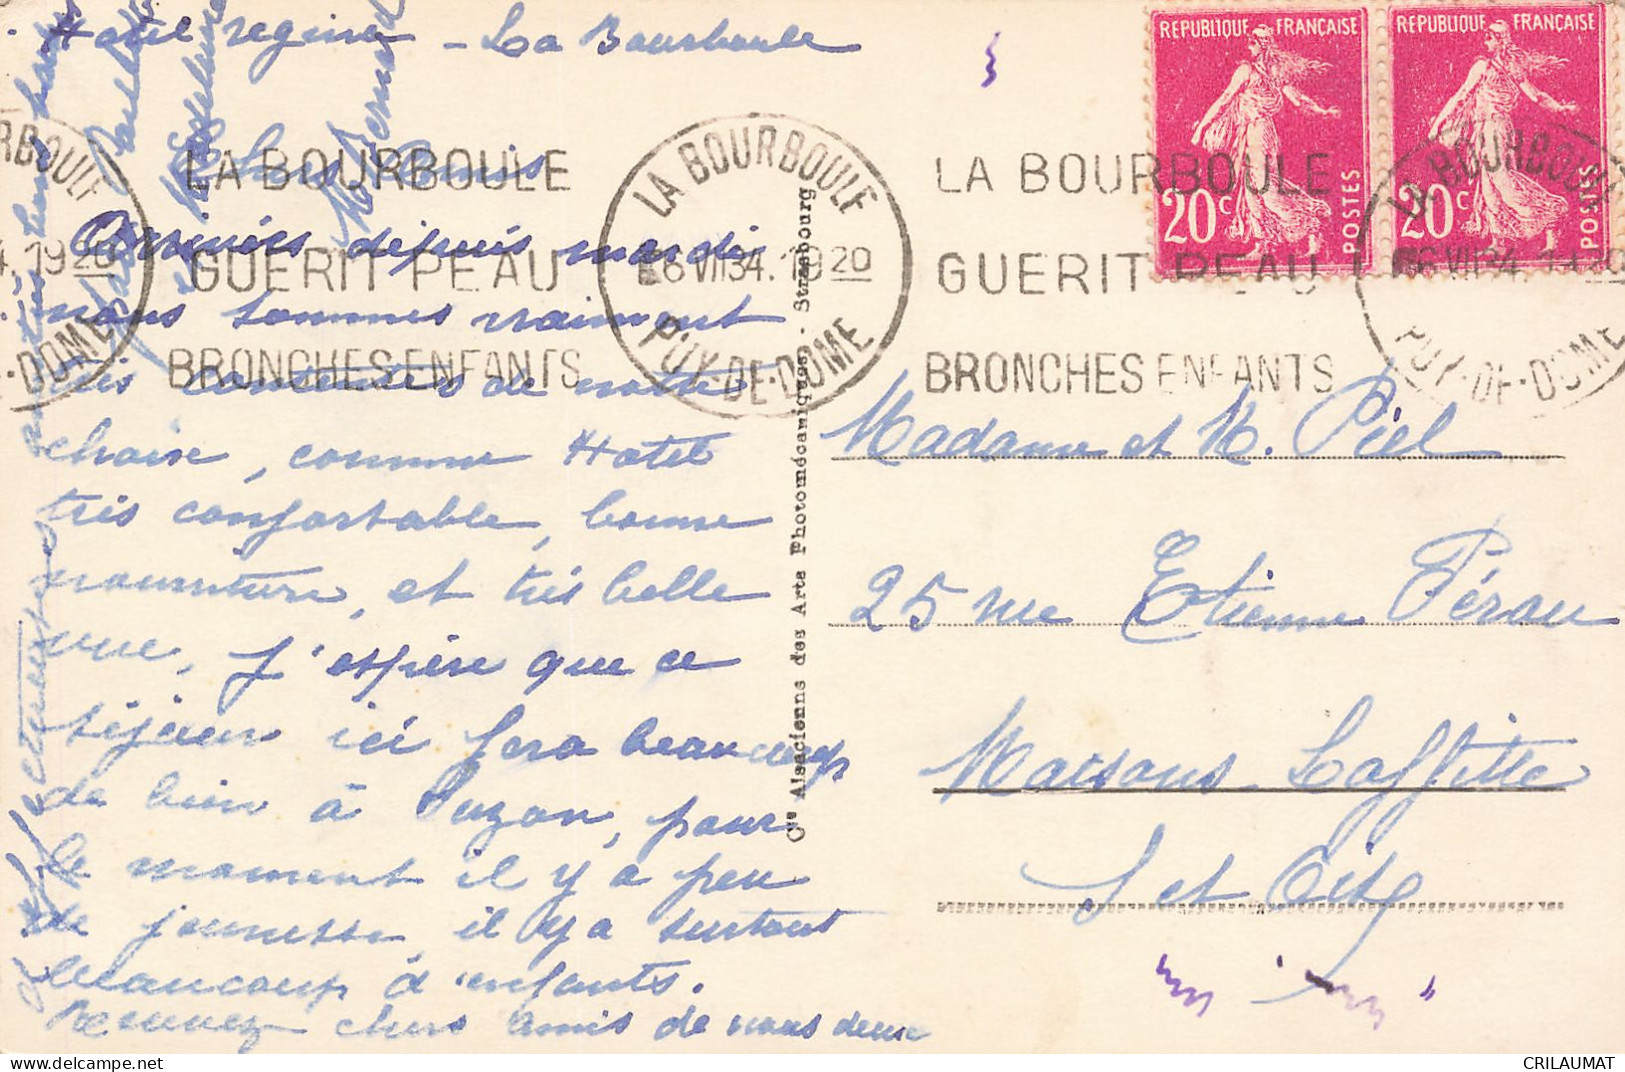 Hotel regina - La Bourboule
Chers Amis
Arrivés depuis mardi
nous sommes vraiment
très contentes de notre
choix, comme Hotel
très confortable, bonne
nourriture, et très belle
vue, j'espère que ce
séjour ici fera beaucoup
de bien à Suzon, pour
le moment il y a peu
de jeunesse, il y a surtout
beaucoup d'enfants.
Recevez chers amis de nous deux
nos
M Bernard
REPUBLIQUE FRANÇAISE
20c
POSTES
REPUBLIQUE FRANÇAISE
20c
POSTES
LA BOURBOULE
GUERIT PEAU
BRONCHES ENFANTS
LA BOURBOULE
6 VII 34. 1920
PUY-DE-DOME
LA BOURBOULE
GUERIT PEAU
BRONCHES ENFANTS
LA BOURBOULE
6 VII 34. 1920
PUY-DE-DOME
RBOULE
4. 1920
-DOME
Cie Alsacienne des Arts Photomécaniques - Strasbourg
Madame et M. Piel
25 rue Etienne Pérau
Maisons Laffitte
S et Oise
CRILAUMAT